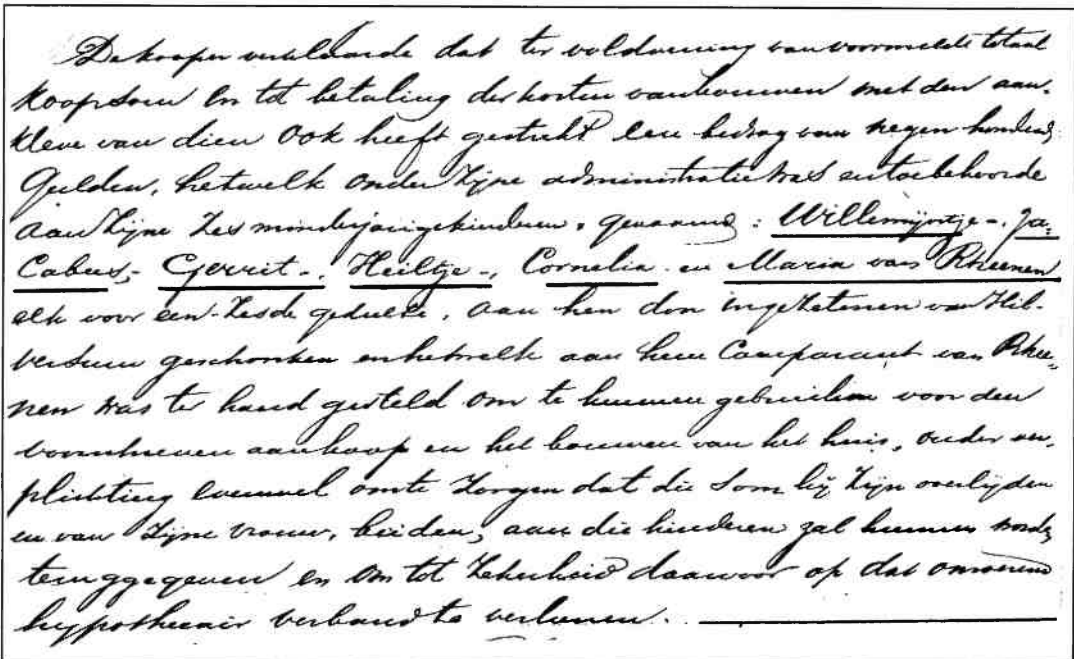 De kooper verklaarde dat ter voldoening van voormelde totaal
koopsom en tot betaling der kosten van bouwen met den aan-
kleve van dien ook heeft gestrekt een bedrag van negen honderd
Gulden, hetwelk onder zijne administratie was en toebehoorde
aan zijne zes minderjarige kinderen, genaamd: Willemijntje-, Ja-
cobus-, Gerrit-, Heiltje-, Cornelia- en Maria van Rheenen
elk voor een-zesde gedeelte, aan hen door ingezetenen van Hil-
versum geschonken en hetwelk aan hem Comparant van Rhee-
nen was ter hand gesteld om te kunnen gebruiken voor den
voorschreven aankoop en het bouwen van het huis, onder ver-
plichting evenwel om te zorgen dat die som bij zijn overlijden
en van zijne vrouw, beiden, aan die kinderen zal kunnen worden
teruggegeven en om tot zekerheid daarvoor op dat onroerend
hypothecair verband te verleenen.